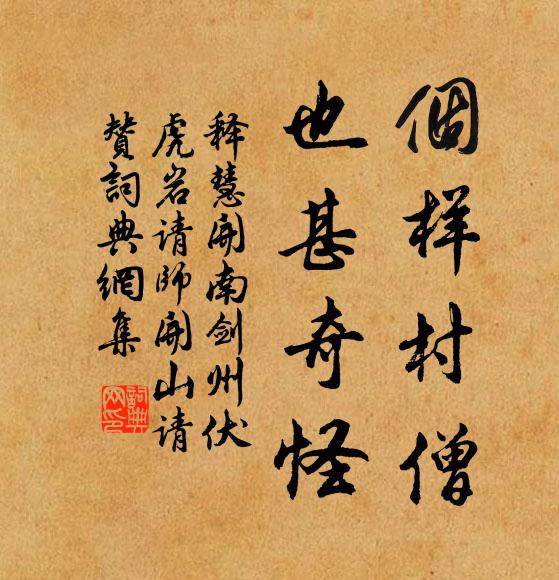 個样村僧
也甚奇怪
释慧开南剑州伏
虎岩请师开山请
赞詞典網集
詞典網印